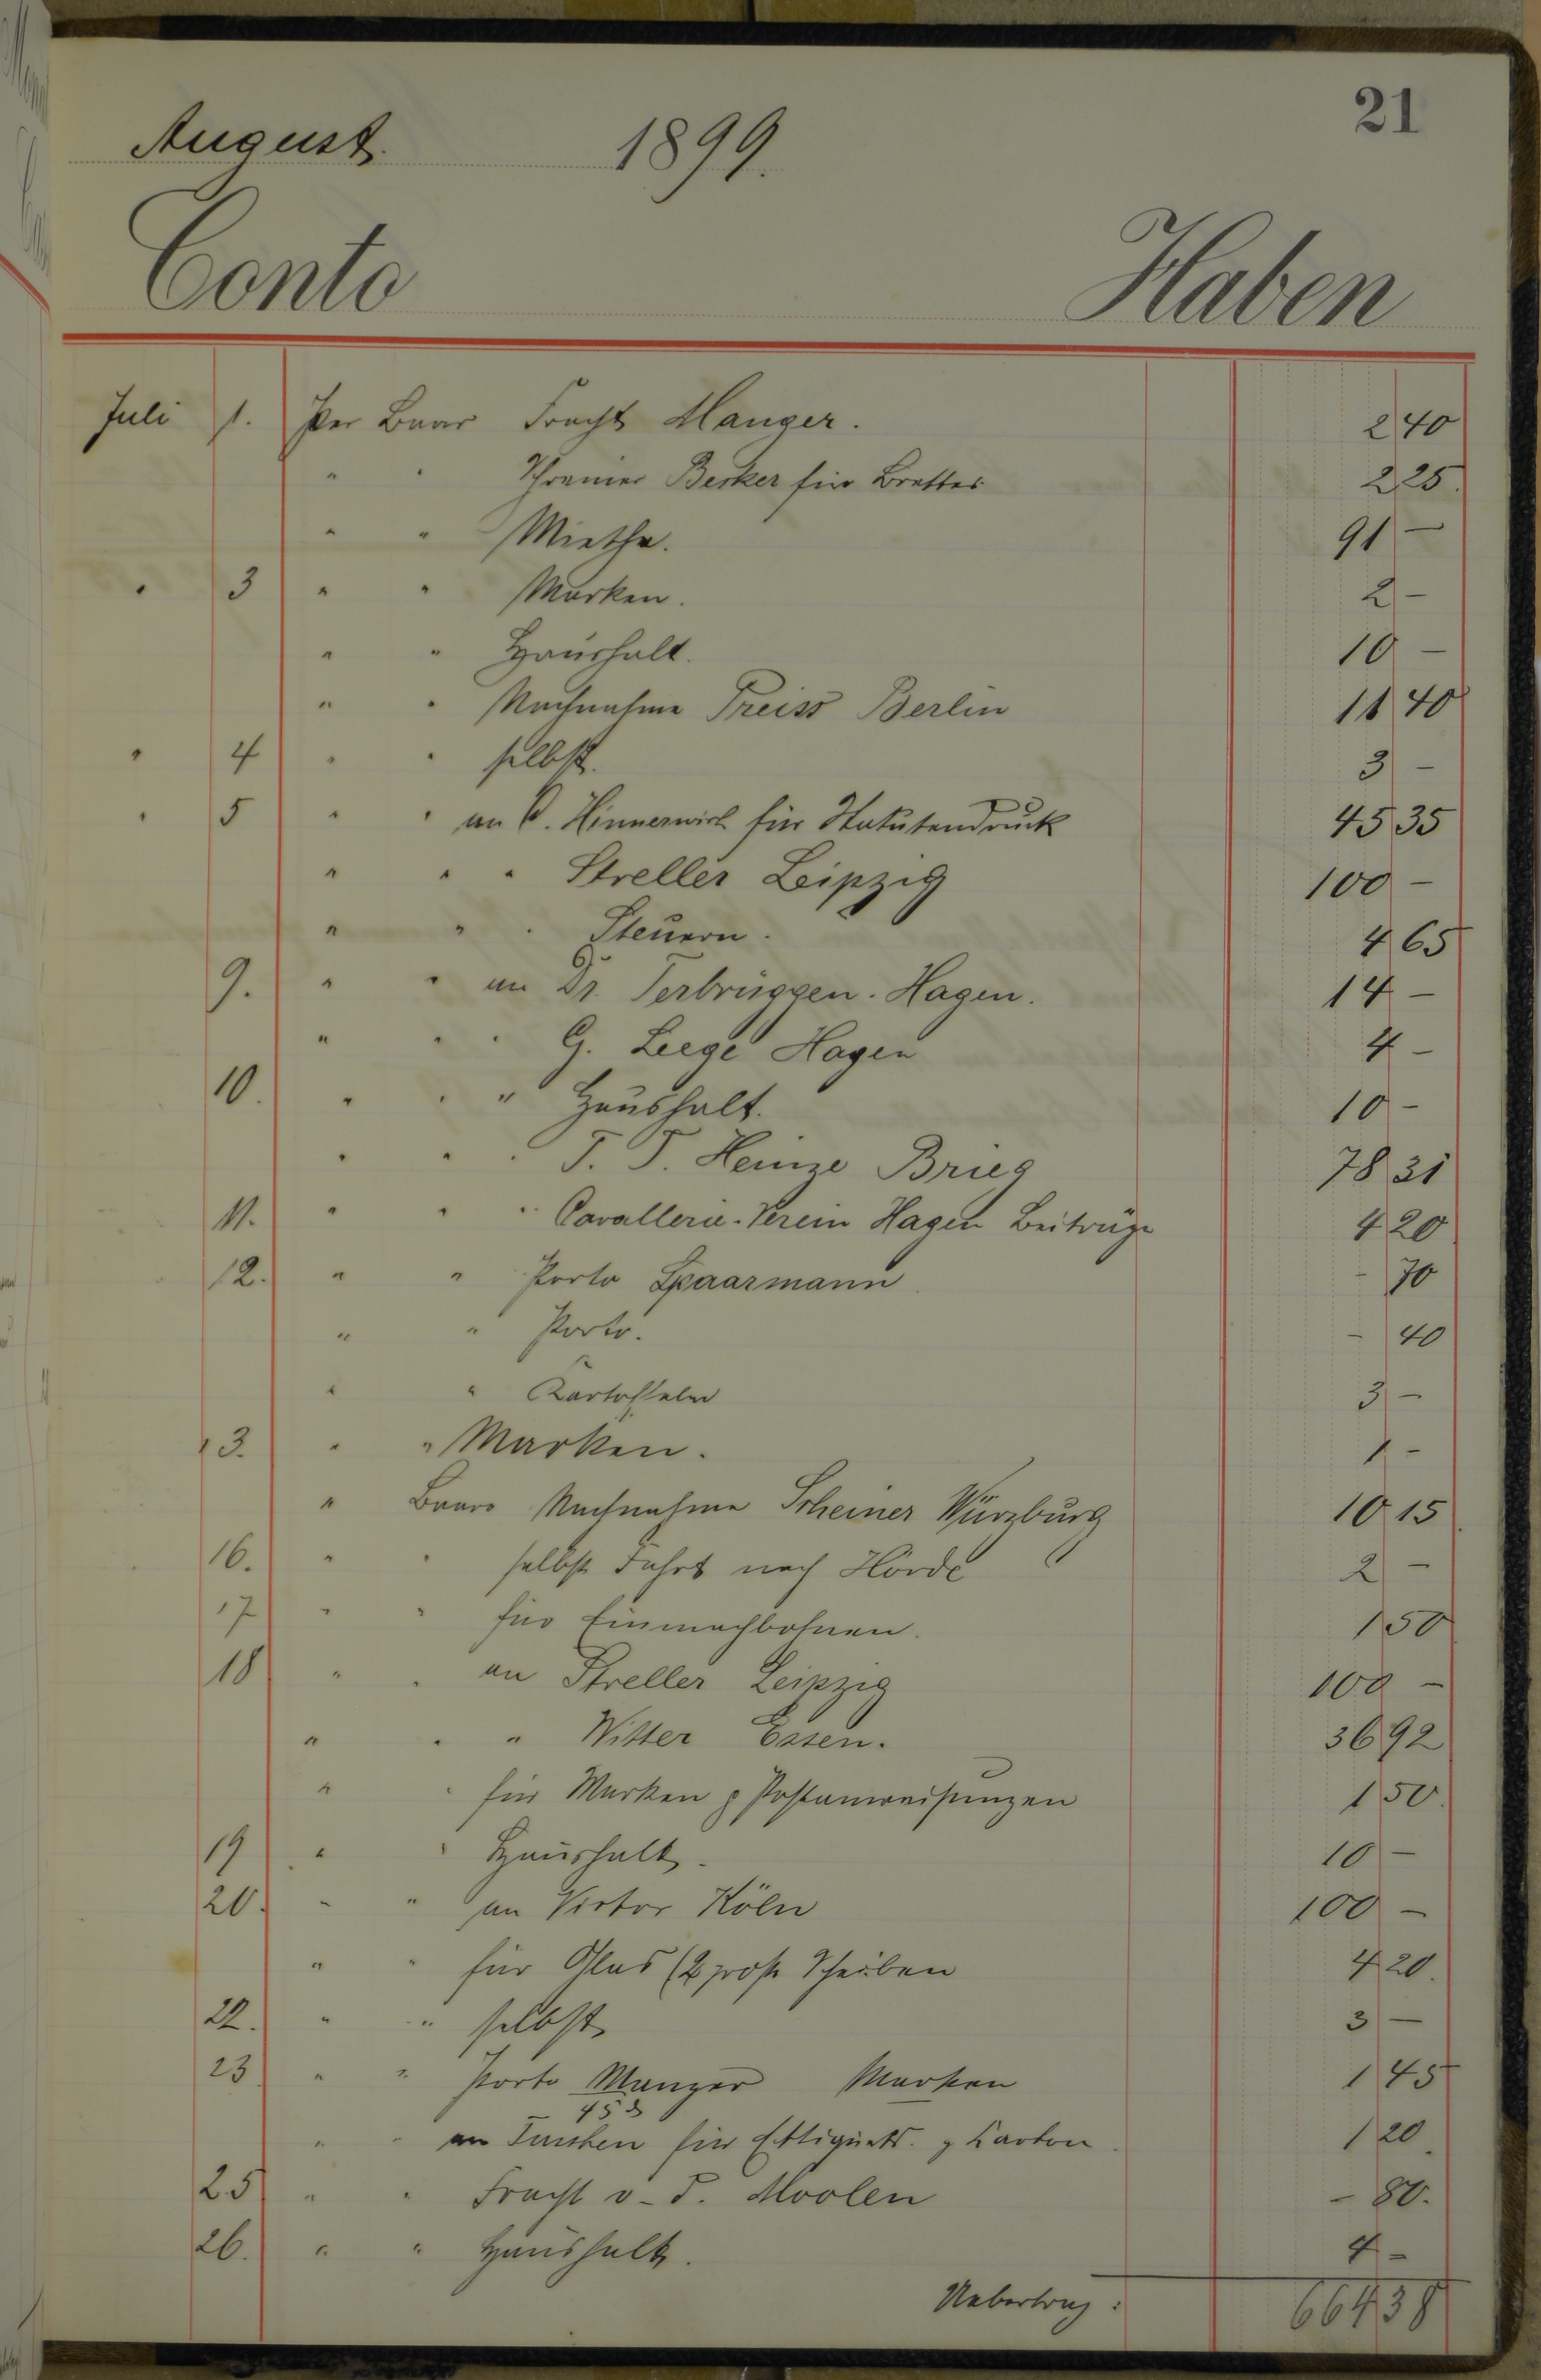 21
August. 1899.
Conto Haben
Juli 1. Per Baar Fracht Manger. 2 40
" " Schreiner Becker für Bretter 2 25.
" " Miethe. 91 –
" 3 " " Marken. 2 –
" " Haushalt. 10 –
" " Nachnahme Preiss Berlin 11 40
" 4 " " selbst. 3 –
" 5 " " an C. Hinnerwisch für Statutendruck 45 35
" " " Streller Leipzig 100 –
" " " Steuern. 4 65
9. " " an Dr. Terbrüggen. Hagen. 14 –
" " " G. Leege Hagen 4 –
10. " " " Haushalt. 10 –
" " " Heinze Brieg 78 31
11. " " " Cavallerie-Verein Hagen Beiträge 4 20
12. " " Porto Spaarmann – 70
" " Porto. – 40
" " Kartoffeln 3 –
13. " " Marken. 1 –
" Baar Nachnahme Scheiner Würzburg 10 15
16. " " selbst Fahrt nach Hörde 2 –
17 " " für Einmachbohnen. 1 50
18 " " an Streller Leipzig 100 –
" " " Witter Essen. 36 92
" " für Marken & Postanweisungen 1 50.
19 " " Haushalt. 10 –
20. " " an Victor Köln 100 –
" " für Glas (2 große Scheiben 4 20.
22. " " selbst. 3 –
23 " " Porto Manger Marken 1 45
45
" " an für Ettiquets. & Karton 1 20.
25 " " Fracht v. d. Moolen – 80.
26. " " Haushalt. 4 –
Uebertrag: 664 38